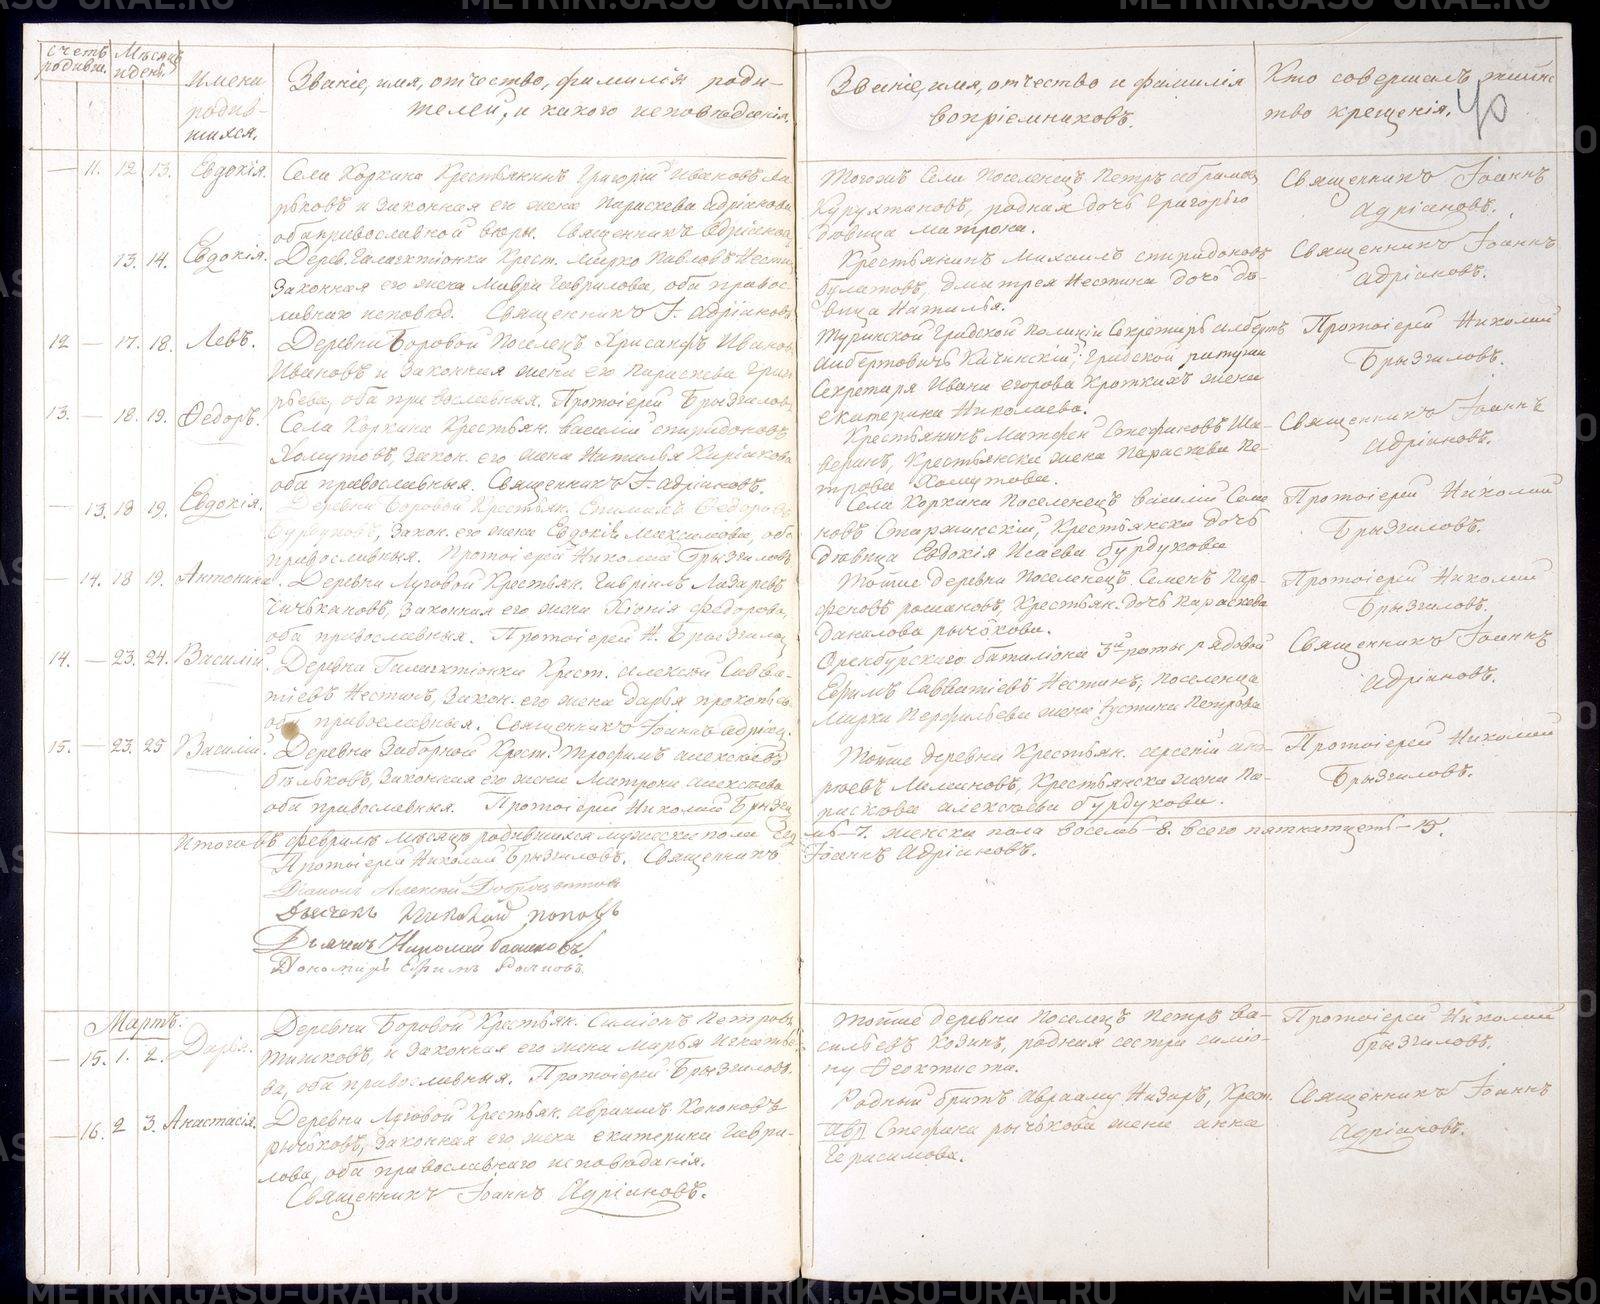 Счетъ родивш.
Мѣсяцъ и день.
Имена родив-
шихся.
Званіе, имя, отчество, фамилія роди-
телей, и какого исповѣданія.
Званіе, имя, отчество и фамилія
вопріемниковъ.
Кто совершалъ таин-
тво крещенія.
40
— 11. 12 13. Евдокія.
Села Коркина Крестьянинъ Григорій Ивановъ
и законная его жена Параскева Адріанова
оба православной вѣры. Священникъ Адріановъ
Тогожъ Села Поселенецъ Петръ Абрамовъ
родная дочь Григорья
дѣвица Матрона.
Священникъ Іоаннъ
Адріановъ.
13. 14. Евдокія.
Дерев. Галактіонки Крест. Марко Павловъ Нестинъ
Законная его жена Мавра Гаврилова, оба право-
славнаго исповѣд. Священникъ І. Адріановъ
Крестьянинъ Михаилъ Спиридоновъ
Булатовъ, Дмитрея Нестина дочь дѣ-
вица Наталья.
Священникъ Іоаннъ
Адріановъ.
12 — 17. 18. Левъ.
Деревни Боровой Поселенецъ Хрисанфъ Ивановъ
Ивановъ и законная жена его Параскева Григо-
рьева, оба православныя. Протоіерей Брызгаловъ
Туринской Градской Полиціи Секретарь Албертъ
Албертовичь Качинскій, Градской ратуши
Секретаря Ивана Егорова Кроткихъ жена
Екатерина Николаева.
Протоіерей Николай
Брызгаловъ.
13. — 18. 19. Ѳедоръ.
Села Коркина Крестьян. Василій Спиридоновъ
Хомутовъ, закон. его жена Наталья Киріакова
оба православныя. Священникъ І. Адріановъ.
Крестьянинъ Матфей Стефановъ Ша-
веринъ, Крестьянска жена Параскева Пе-
трова Хомутова.
Священникъ Іоаннъ
Адріановъ.
— 13. 18 19. Евдокія.
Деревни Боровой Крестьян. Ѳедоровъ
Бурдуковъ, закон. его жена Евдокія Максимова, оба
православныя. Протоіерей Николай Брызгаловъ
Села Коркина Поселенецъ Василій Семе-
новъ Старжинскій, Крестьянска дочь
дѣвица Евдокія Исаева Бурдукова
Протоіерей Николай
Брызгаловъ.
— 14. 18 19. Антонина.
Деревни Луговой Крестьян. Гавріилъ Лазаревъ
Чичькановъ, Законная его жена Хіонія Федорова,
оба православныя. Протоіерей Н. Брызгаловъ
Тойже деревни Поселенецъ Семенъ Пар-
феновъ Романовъ, Крестьян. дочь Параскева
Данилова Рычькова.
Протоіерей Николай
Брызгаловъ.
14. — 23. 24. Василій.
Деревни Галактіонки Крест. Алексѣй Савва-
тіевъ Нестинъ, закон. его жена Дарья Прокопьева
оба православныя. Священникъ Іоаннъ Адріан.
Оренбурскаго баталіона 3й роты рядовой
Ефимъ Савватіевъ Нестинъ, Поселенца
Марка Перфильева жена Устина Петрова
Священникъ Іоаннъ
Адріановъ.
15. — 23. 25 Василій.
Деревни Заборной Крест. Трофимъ Алексѣевъ
Бѣльковъ, Законная его жена Матрона Алексѣева
оба православныя. Протоіерей Николай Брызгал.
Тойже деревни Крестьян. Арсеній Анд-
рѣевъ Мамаиновъ, Крестьянска жена Па-
раскова Алексѣева Бурдукова.
Протоіерей Николай
Брызгаловъ.
Итого въ февралѣ мѣсяцѣ родившихся мужеска пола седмь — 7. женска пола восемь — 8. всего пятнатцеть — 15.
Протоіерей Николай Брызгаловъ. Священникъ Іоаннъ Адріановъ.
Діаконъ Алексѣй
Дьячекъ Николай Поповъ
Дьячекъ Николай
Пономарь Ефимъ
Мартъ.
— 15. 1. 2. Дарья.
Деревни Боровой Крестьян. Симіонъ Петровъ
Тишковъ, и законная его жена Марья Игнатье-
ва, оба православныя. Протоіерей Брызгаловъ.
Тойже деревни Поселенецъ Петръ Ва-
сильевъ Козинъ, родная сестра Симіо-
ну Ѳеоктиста.
Протоіерей Николай
Брызгаловъ.
— 16. 2 3. Анастасія.
Деревни Луговой Крестьян. Авраамъ Кононовъ
Рычьковъ, Законная его жена Екатерина Гаври-
лова, оба православнаго исповѣданія.
Священникъ Іоаннъ Адріановъ.
Родный братъ Аврааму Назаръ, Крест.
Стефана Рычькова жена Анна
Герасимова.
Священникъ Іоаннъ
Адріановъ.
METRIKI.GASO-URAL.RU